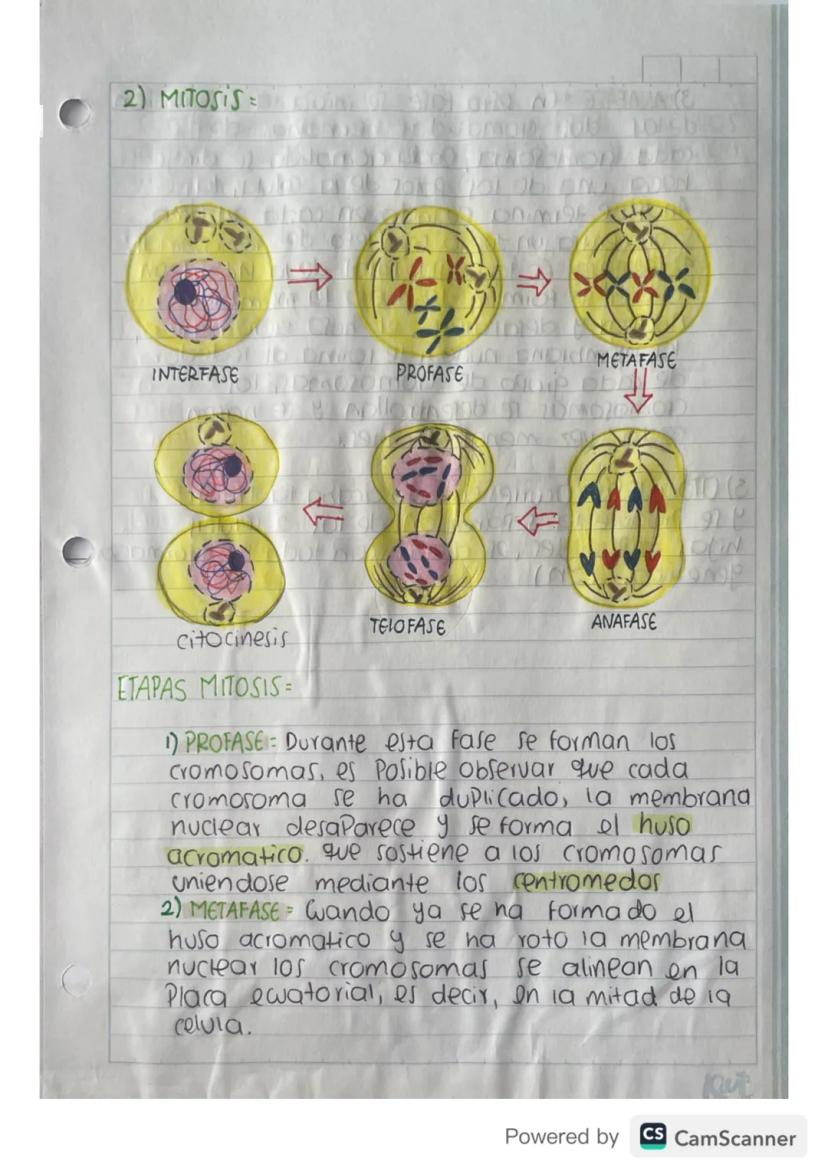 2) MITOSIS=
INTERFASE
PROFASE
METAFASE
CITOCINESIS
TELOFASE
ANAFASE
ETAPAS MITOSIS=
1) PROFASE= Durante esta fase se forman los
cromosomas, es posible observar que cada
cromosoma se ha duplicado, la membrana
nuclear desaparece y se forma el huso
acromatico. que sostiene a los cromosomas
uniendose mediante los centromedos
2) METAFASE= Cuando ya se ha formado el
huso acromatico y se ha roto la membrana
nuclear los cromosomas se alinean en la
Placa ecuatorial, es decir, en la mitad de la
celula.
Powered by CS CamScanner